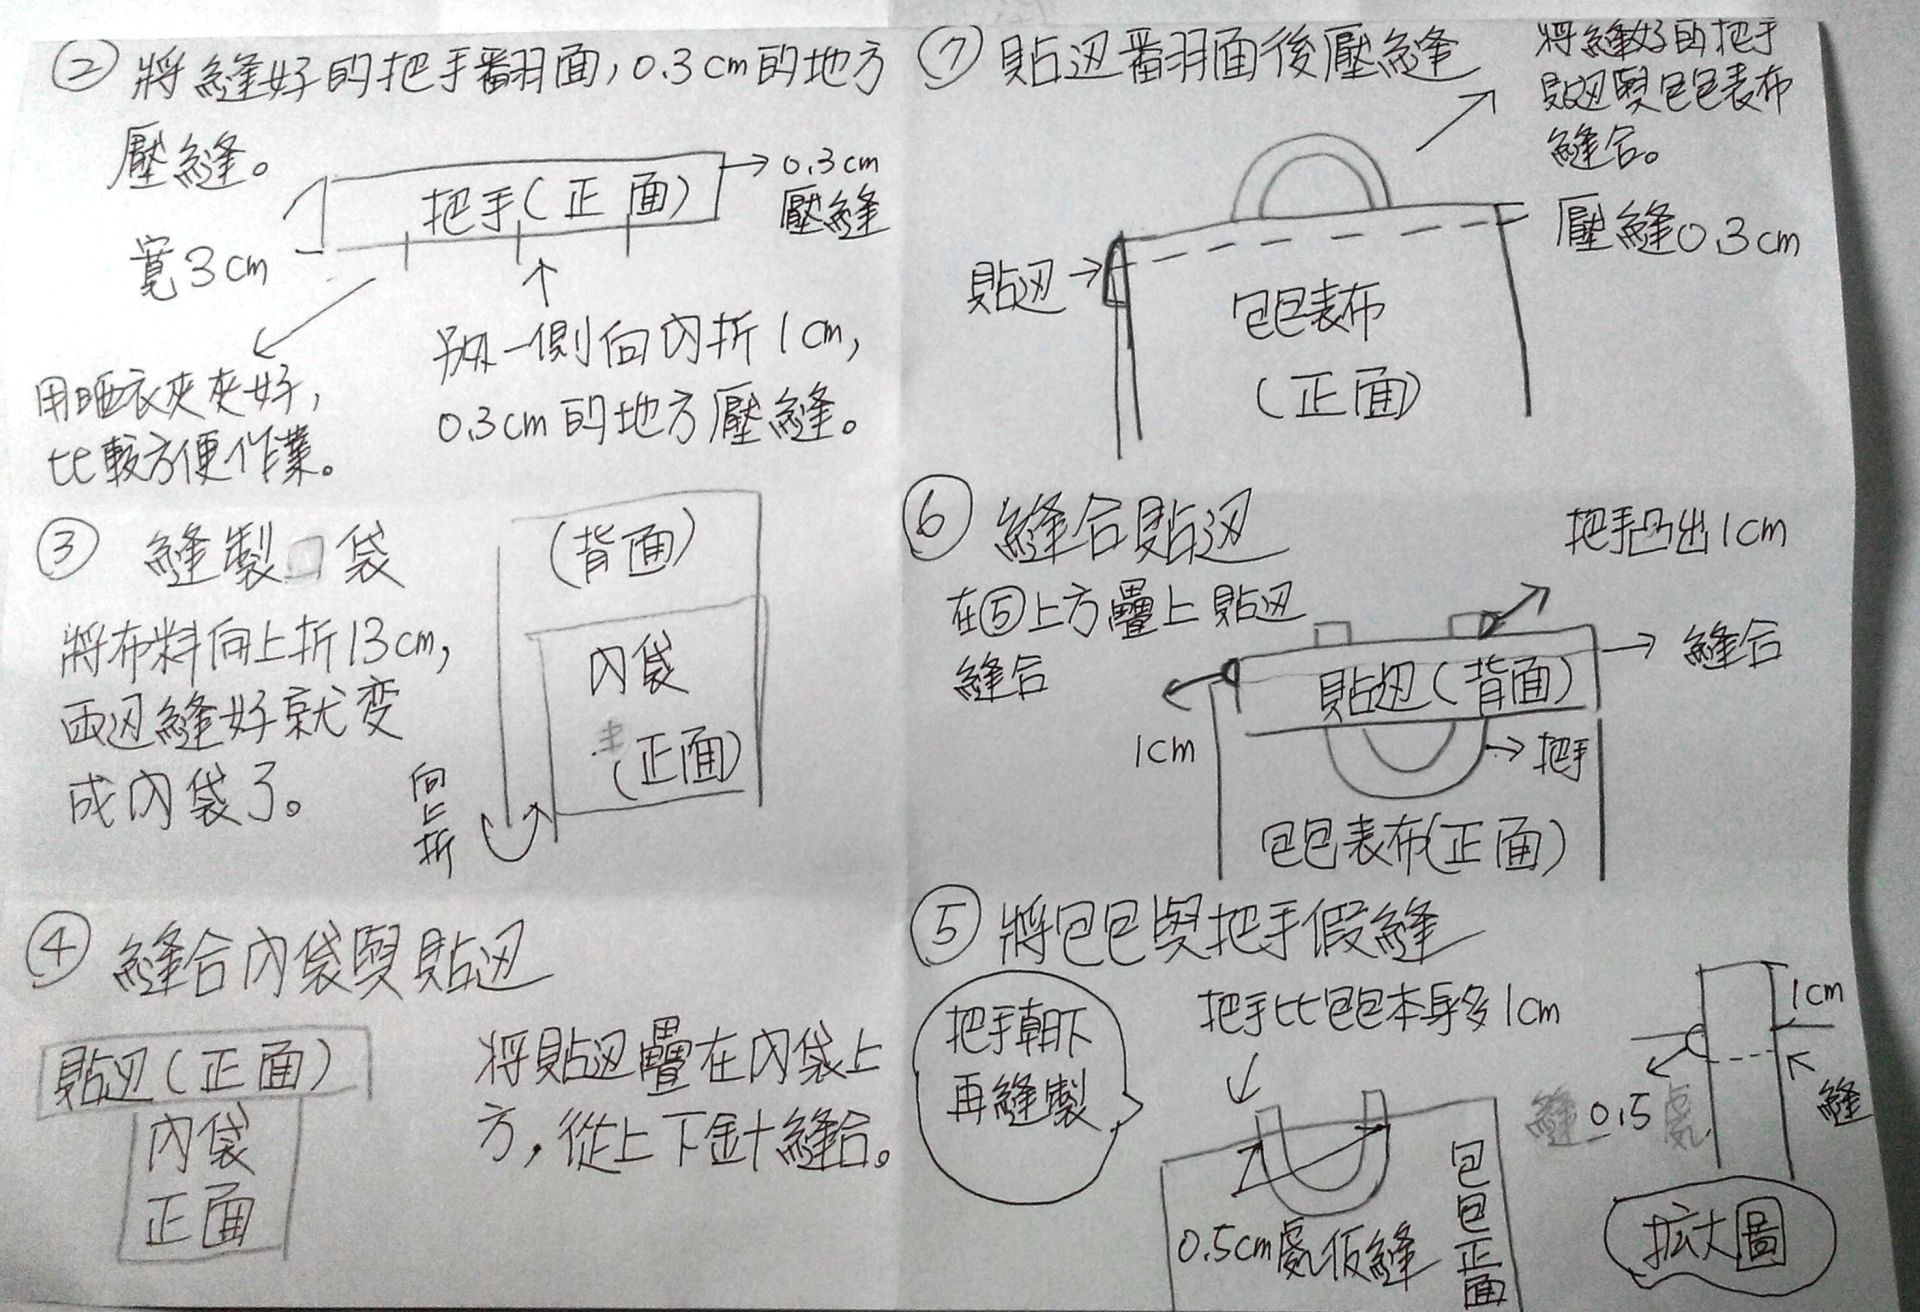 ② 將縫好的把手翻面，0.3cm的地方
壓縫。
把手(正面)
0.3cm
壓縫
寬3cm
用晒衣夾夾好，
比較方便作業。
另一側向內折1cm，
0.3cm的地方壓縫。
③ 縫製口袋
將布料向上折13cm，
両辺縫好就变
成內袋了。
(背面)
內袋
(正面)
向上折
④ 縫合內袋與貼边
貼边(正面)
內袋
正面
将貼边疊在內袋上
方，從上下針縫合。
⑦ 貼边翻面後壓縫
将縫好的把手
貼边與包包表布
縫合。
壓縫0.3cm
貼边
包包表布
(正面)
⑥ 縫合貼边
在⑤上方疊上貼边
縫合
把手凸出1cm
縫合
貼边(背面)
1cm
把手
包包表布(正面)
⑤ 將包包與把手假縫
把手朝下
再縫製
把手比包包本身多1cm
0.5cm處仮縫
包包正面
1cm
縫
縫 0.5 處
拡大圖